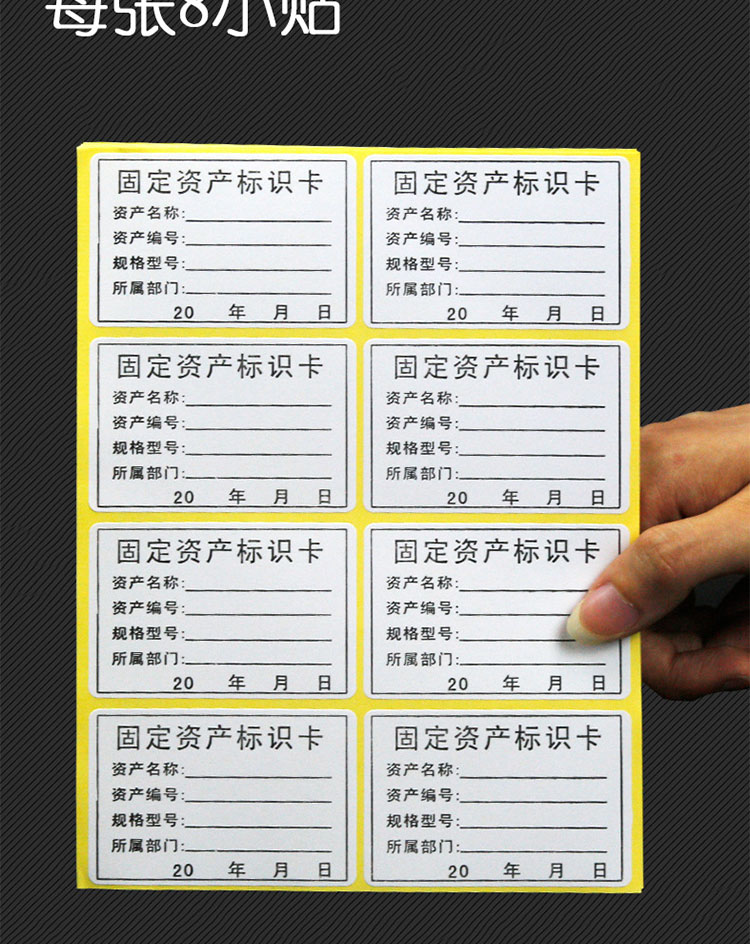 每张8小贴
固定资产标识卡
资产名称:
资产编号:
规格型号:
所属部门:
20 年 月 日
固定资产标识卡
资产名称:
资产编号:
规格型号:
所属部门:
20 年 月 日
固定资产标识卡
资产名称:
资产编号:
规格型号:
所属部门:
20 年 月 日
固定资产标识卡
资产名称:
资产编号:
规格型号:
所属部门:
20 年 月 日
固定资产标识卡
资产名称:
资产编号:
规格型号:
所属部门:
20 年 月 日
固定资产标识卡
资产名称:
资产编号:
规格型号:
所属部门:
20 年 月 日
固定资产标识卡
资产名称:
资产编号:
规格型号:
所属部门:
20 年 月 日
固定资产标识卡
资产名称:
资产编号:
规格型号:
所属部门:
20 年 月 日